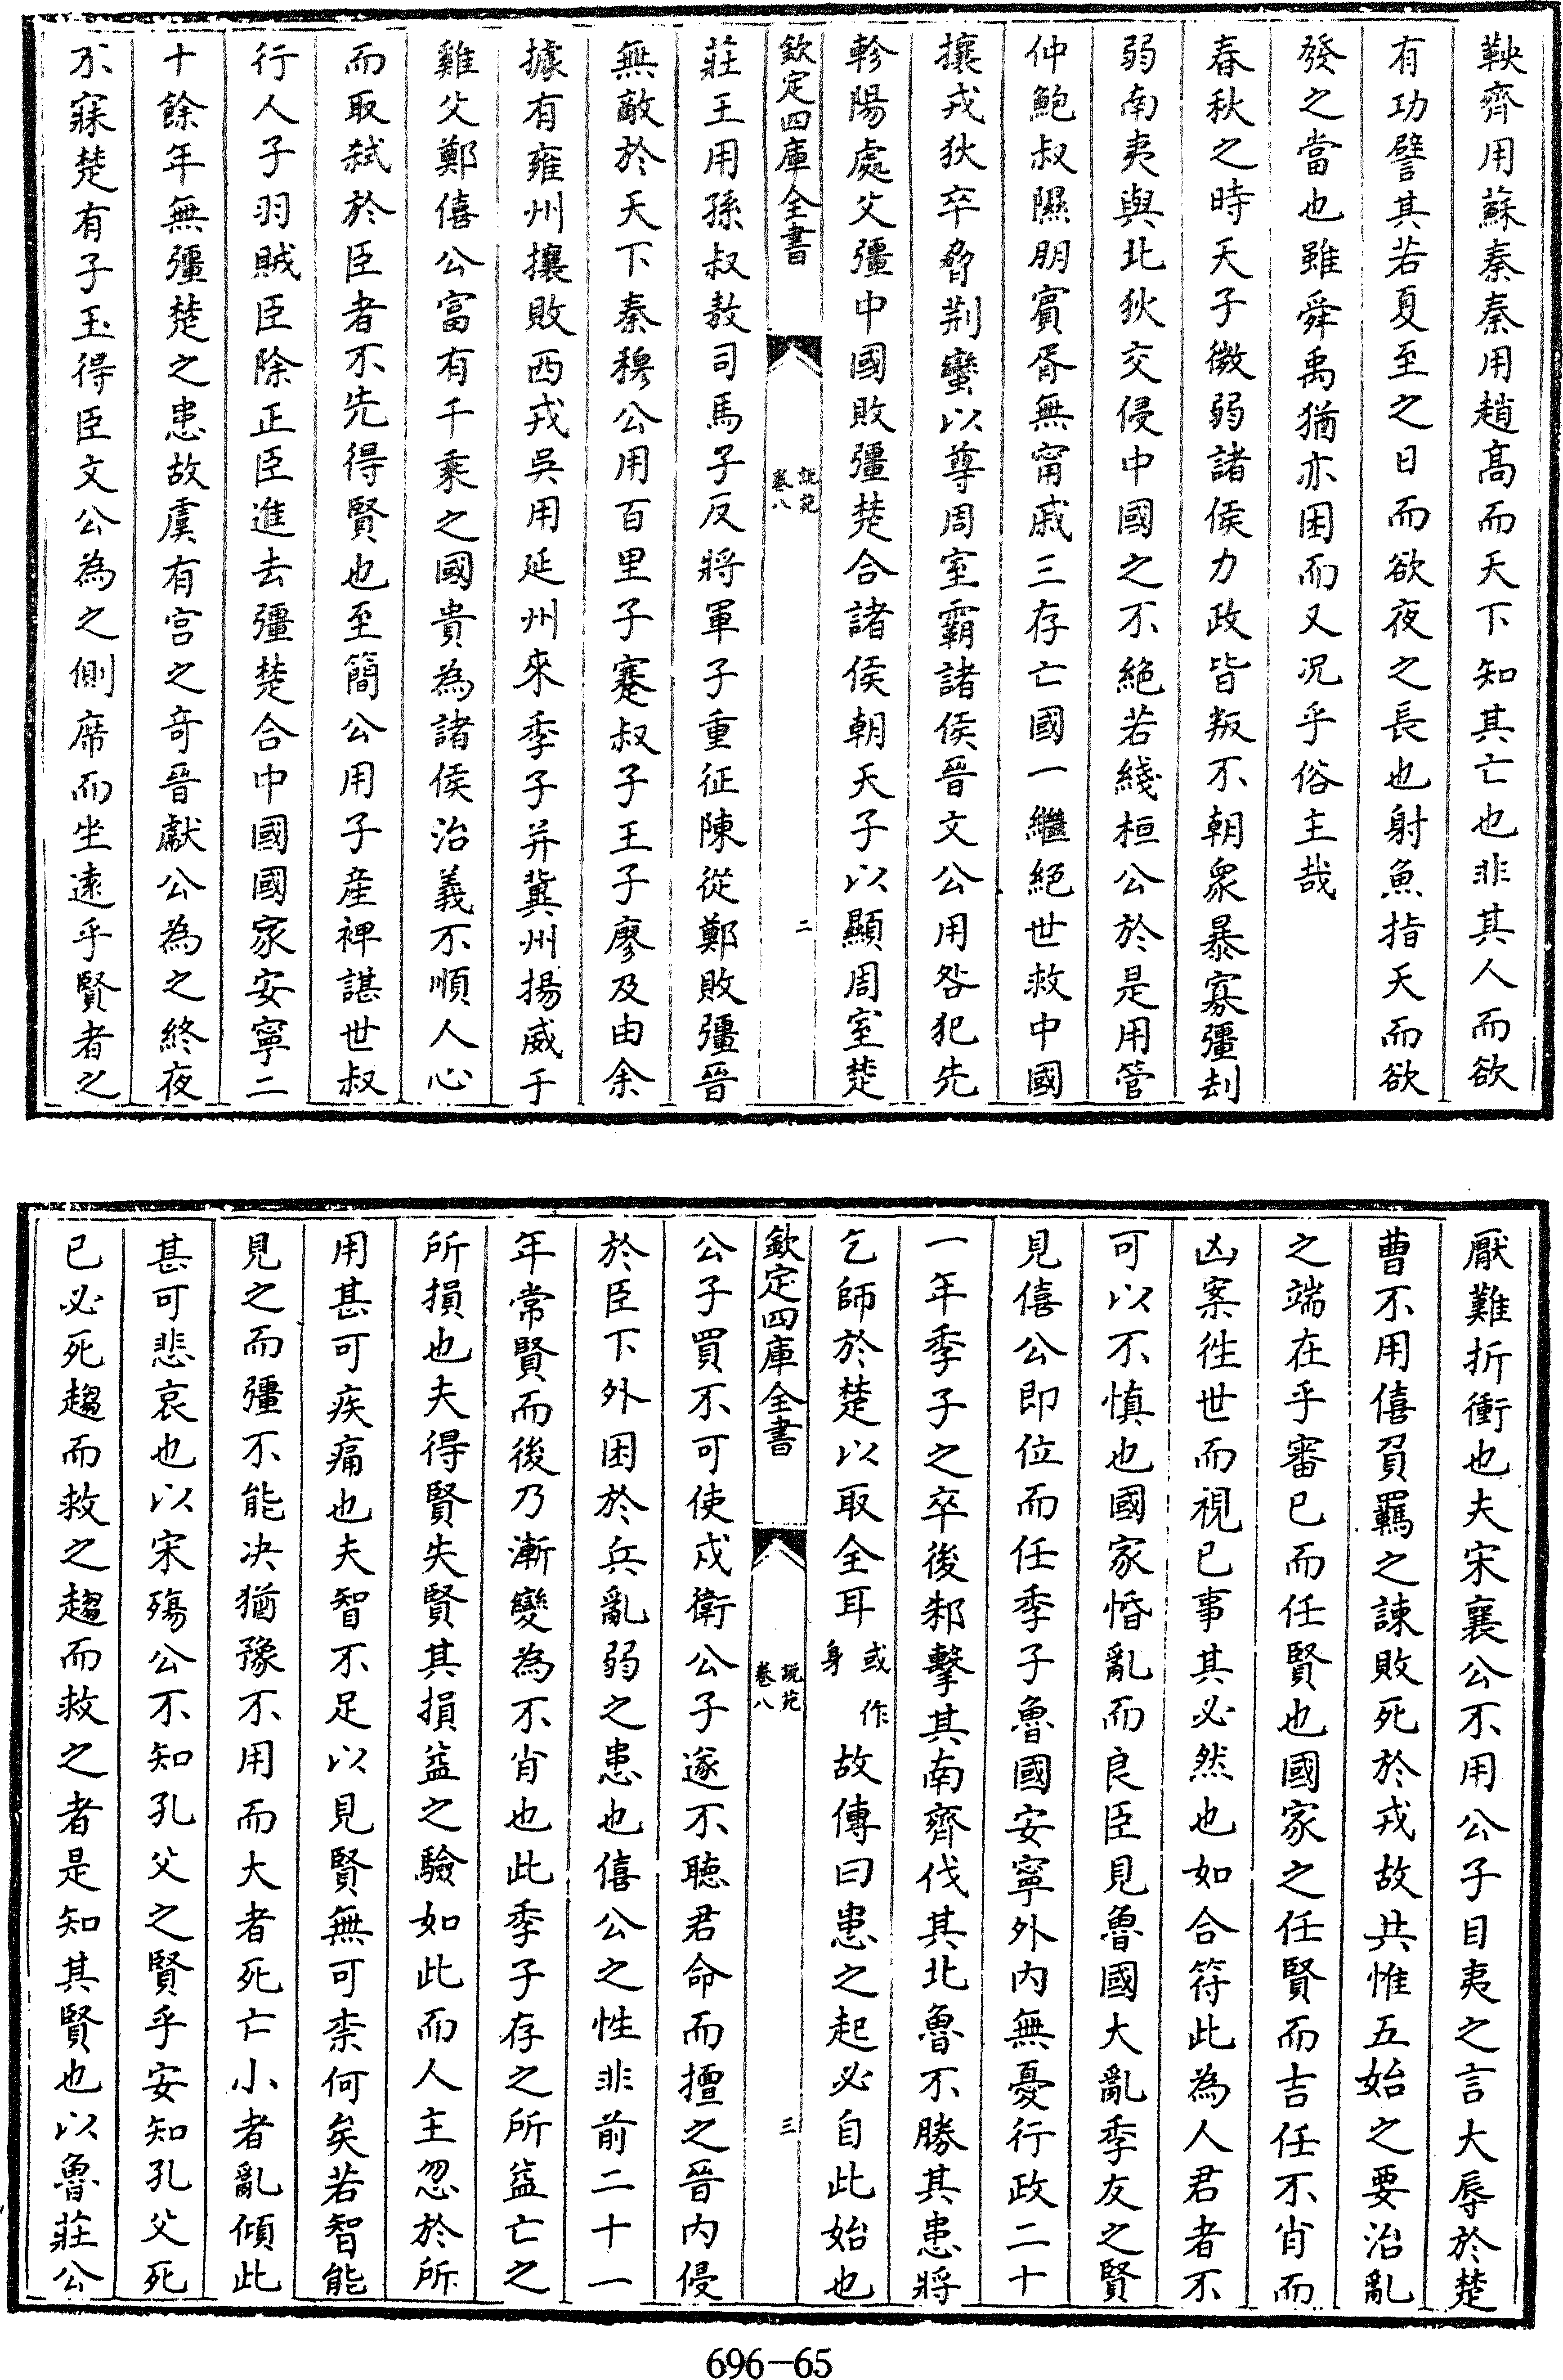 鞅齊用蘇秦秦用趙髙而天下知其亡也非其人而欲
有功譬其若夏至之日而欲夜之長也射魚指天而欲
發之當也雖舜禹猶亦困而又况乎俗主哉
春秋之時天子微弱諸侯力政皆叛不朝衆暴寡彊刦
弱南夷與北狄交侵中國之不絶若綫桓公於是用管
仲鮑叔隰朋賓胥無甯戚三存亡國一繼絶世救中國
攘戎狄卒脅荆蠻以尊周室霸諸侯晉文公用咎犯先
軫陽處父彊中國敗彊楚合諸侯朝天子以顯周室楚
欽定四庫全書
說苑
卷八
二
莊王用孫叔敖司馬子反將軍子重征陳從鄭敗彊晉
無敵於天下秦穆公用百里子蹇叔子王子廖及由余
據有雍州攘敗西戎吳用延州來季子并冀州揚威于
雞父鄭僖公富有千乘之國貴為諸侯治義不順人心
而取弑於臣者不先得賢也至簡公用子產裨諶世叔
行人子羽賊臣除正臣進去彊楚合中國國家安寧二
十餘年無彊楚之患故虞有宫之竒晉獻公為之終夜
不寐楚有子玉得臣文公為之側席而坐逺乎賢者之
厭難折衝也夫宋襄公不用公子目夷之言大辱於楚
曹不用僖負羈之諫敗死於戎故共惟五始之要治亂
之端在乎審已而任賢也國家之任賢而吉任不肖而
凶案徃世而視已事其必然也如合符此為人君者不
可以不慎也國家惛亂而良臣見魯國大亂季友之賢
見僖公即位而任季子魯國安寧外内無憂行政二十
一年季子之卒後邾擊其南齊伐其北魯不勝其患將
乞師於楚以取全耳或作身故傳曰患之起必自此始也
欽定四庫全書
說苑
卷八
三
公子買不可使戍衛公子遂不聴君命而擅之晉内侵
於臣下外困於兵亂弱之患也僖公之性非前二十一
年常賢而後乃漸變為不肖也此季子存之所益亡之
所損也夫得賢失賢其損益之驗如此而人主忽於所
用甚可疾痛也夫智不足以見賢無可柰何矣若智能
見之而彊不能决猶豫不用而大者死亡小者亂傾此
甚可悲哀也以宋殤公不知孔父之賢乎安知孔父死
已必死趨而救之趨而救之者是知其賢也以魯莊公
696-65